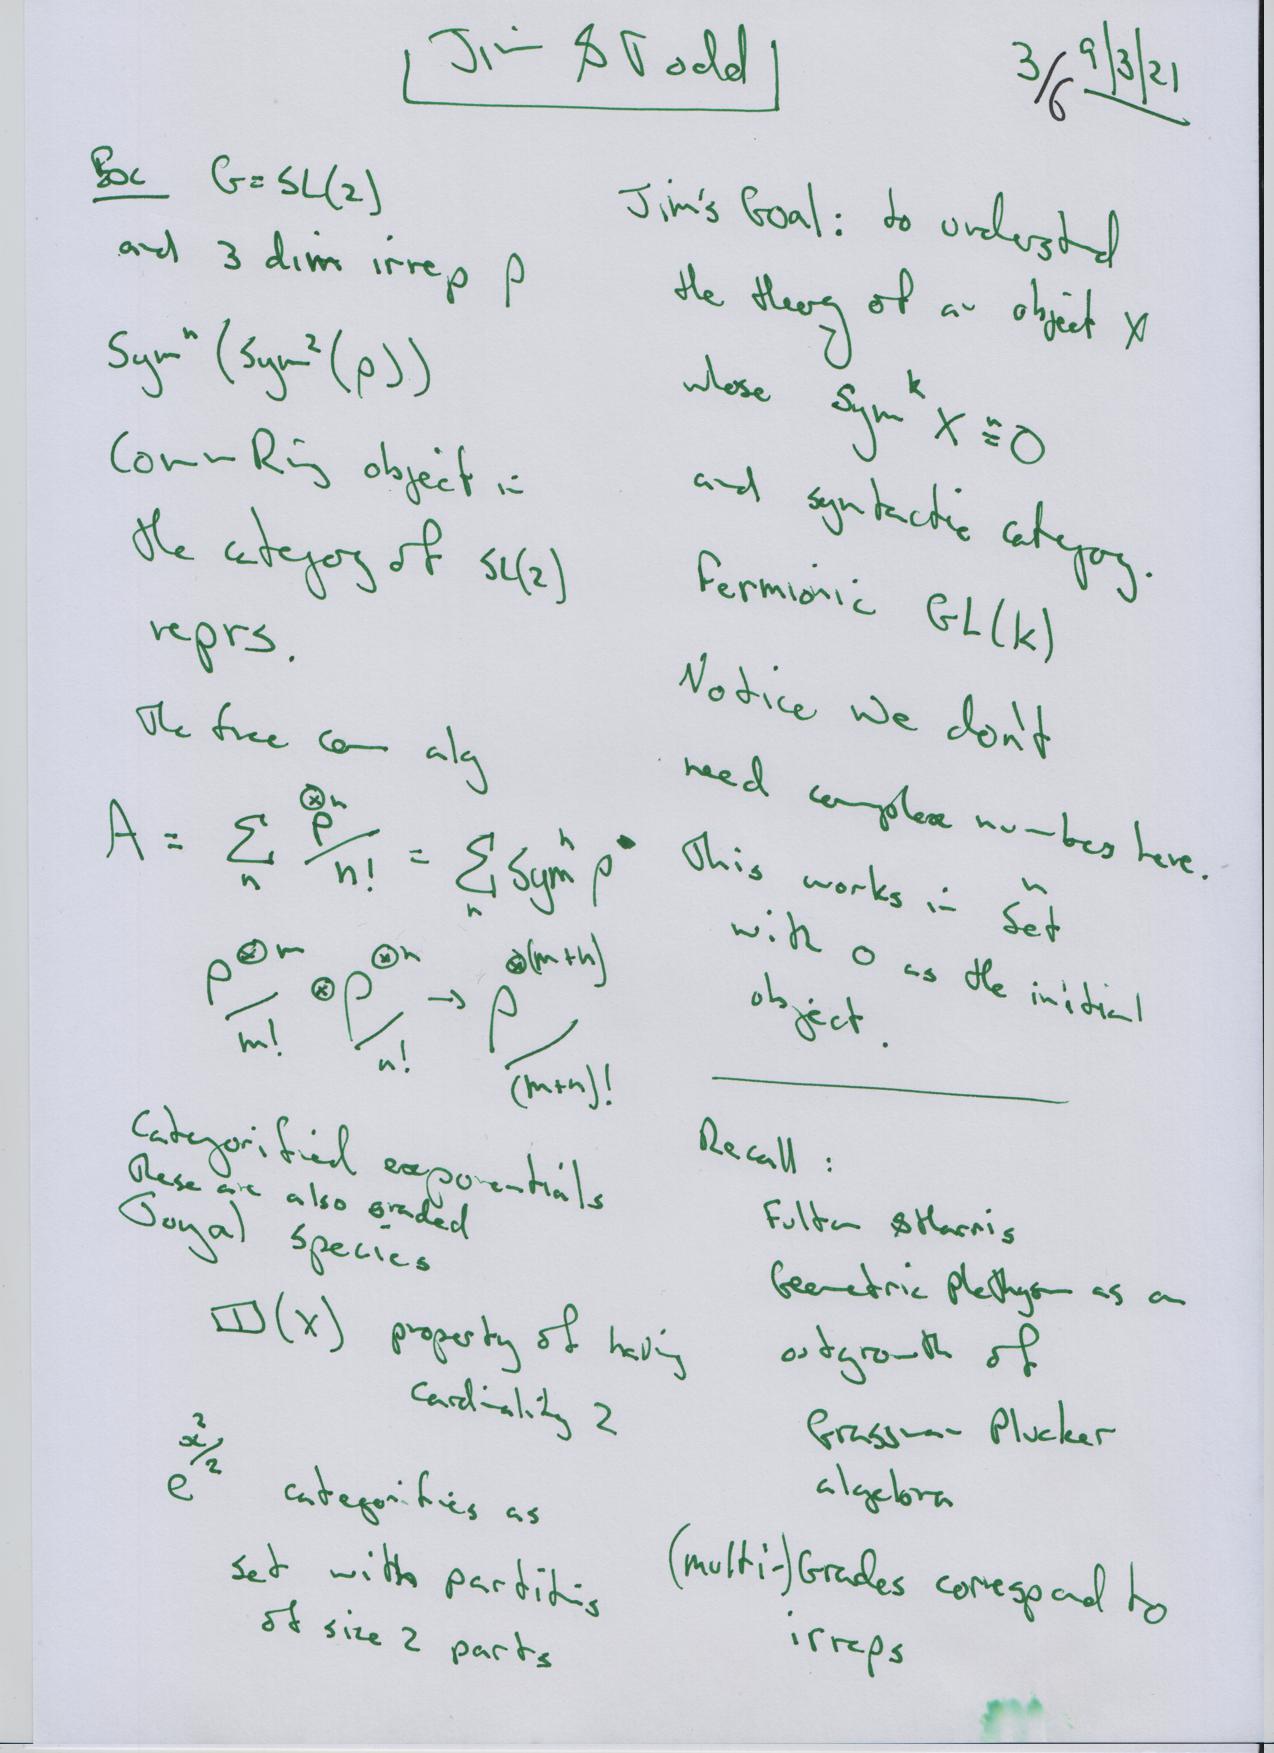 Jim & Todd
3/6 9/3/21
G = SL(2)
and 3 dim irrep ρ
Symⁿ(Sym²(ρ))
Comm Ring object in
the category of SL(2)
reprs.
The free com alg
A = Σₙ ρ^⊗n/n! = Σₙ Symⁿ ρ
ρ^⊗m/m! ⊗ ρ^⊗n/n! → ρ^⊗(m+n)/(m+n)!
Categorified exponentials
These are also graded
Joyal species
□□(X) property of having
cardinality 2
e^(x²/2) categorifies as
set with partitions
of size 2 parts
Jim's Goal: to understand
the theory of an object X
whose Sym^k X ≅ 0
and syntactic category.
Fermionic GL(k)
Notice we don't
need complex numbers here.
This works in Setⁿ
with 0 as the initial
object.
Recall:
Fulton & Harris
Geometric Plethysm as an
outgrowth of
Grassman Plucker
algebra
(multi-)Grades correspond to
irreps